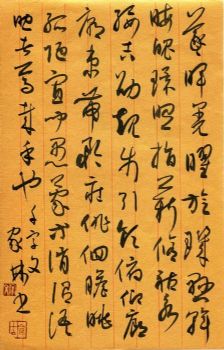 羲暉朗曜旋璣懸斡
晦魄環照指薪修祜永
綏吉劭矩步引領俯仰廊
廟束帶矜莊徘徊瞻眺
孤陋寡聞愚蒙等誚謂語
助者焉哉乎也 千字文
家林书